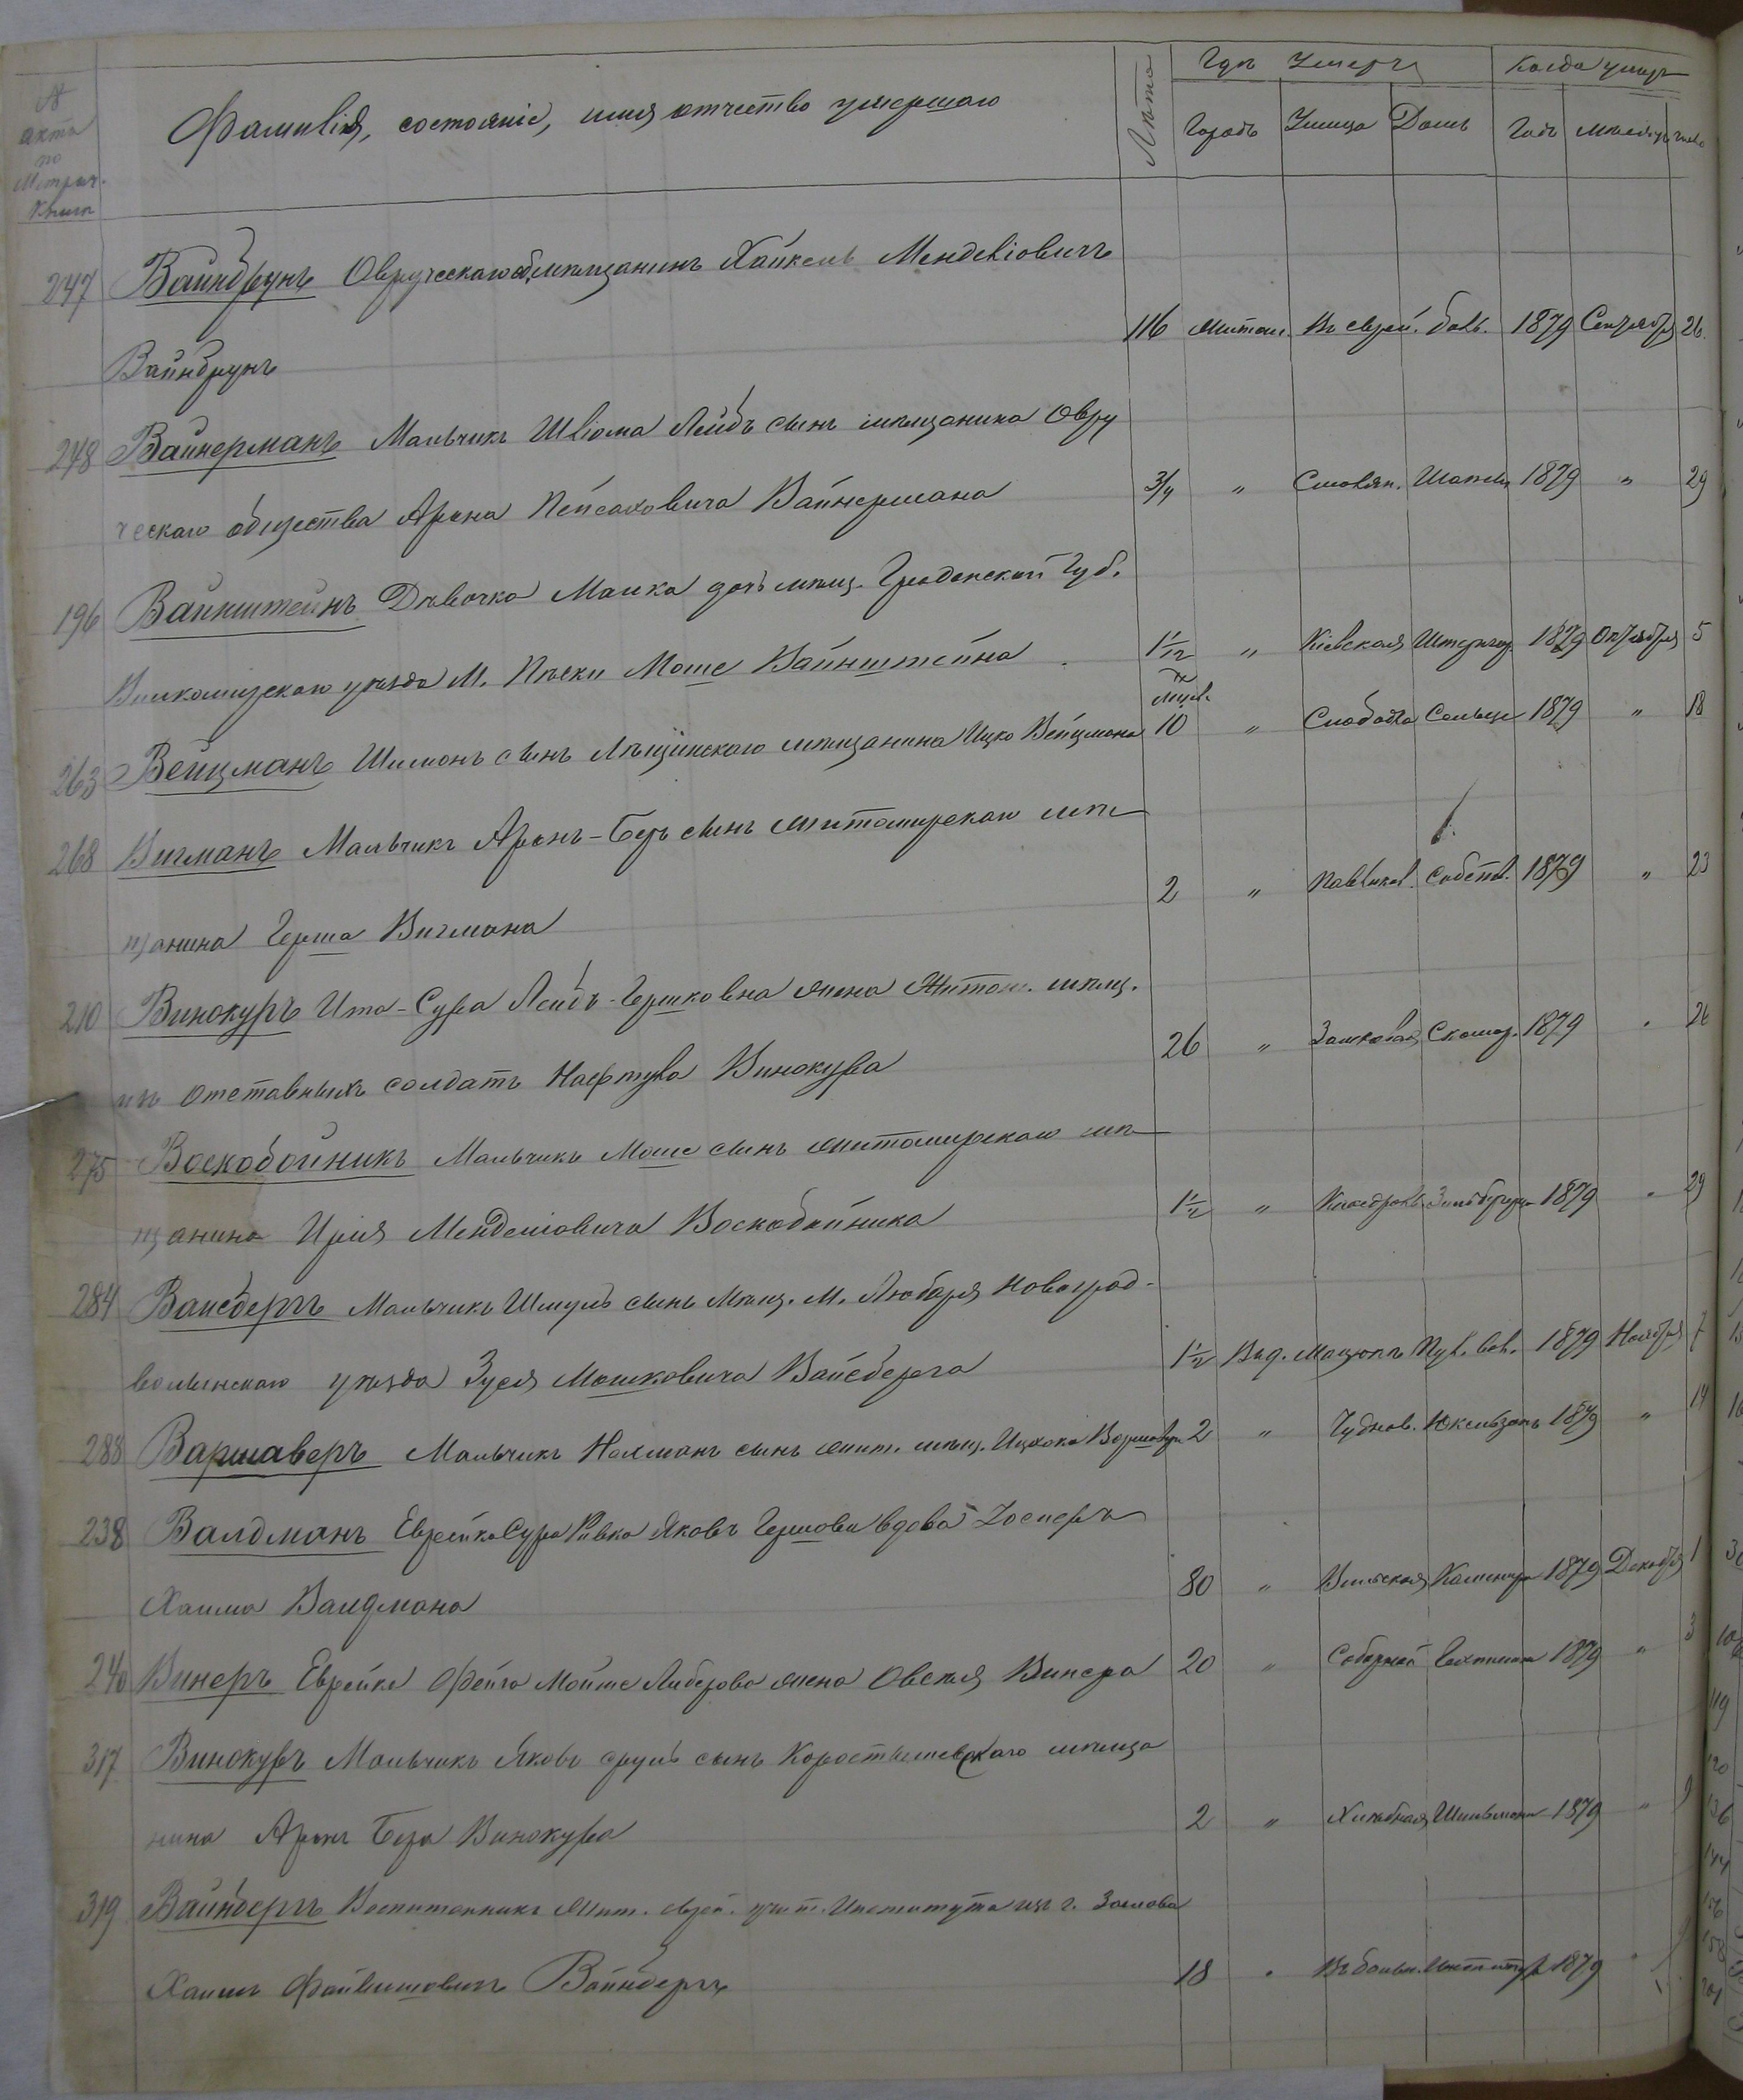 № акта по Метрич. Книги
Фамилія, состояніе, имя отчество умершаго
Лѣта
Гдѣ Умеръ
Когда умеръ
Городъ Улица Домъ Годъ мѣсяцъ число
247 Вайнбрунъ Овруческаго об. мѣщанинъ Хайкель Менделіовичъ
116 Житом. Въ еврей. бол. 1879 Сентября 26.
Вайнбрунъ
248 Вайнерманъ Мальчикъ Шліома Лейбъ сынъ мѣщанина Овру
ческаго общества Арона Пейсаховича Вайнермана 3/4 " Смолян. 1879 " 29
196 Вайнштейнъ Дѣвочка Малка дочь мѣщ. Гродненской Губ.
Вилкомирскаго уѣзда М. Пѣски Моше Вайнштейна 1/12 " Кіевская 1879 Октября 5
263 Вейцманъ Шимонъ сынъ мѣщанина Ицко Вейцмана 10 " Слободка 1879 " 18
268 Вигманъ Мальчикъ Аронъ-Беръ сынъ житомирскаго мѣ
2 " Собств. 1879 " 23
щанина Герша Вигмана
210 Винокуръ Ита-Сура Лейбъ-Гершковна жена Житом. мѣщ.
26 " 1879 " 26
изъ отставныхъ солдатъ Нафтула Винокура
275 Воскобойникъ Мальчикъ Моше сынъ житомирскаго мѣ
щанина Ирія Менделіовича Воскобойника 1½ " 1879 " 29
284 Вайсбергъ Мальчикъ Шмуль сынъ Мѣщ. М. Любаря Новоград-
волынскаго уѣзда Зуся Мошковича Вайсберга 1½ 1879 Ноября 7
288 Варшаверъ Мальчикъ Нахманъ сынъ жит. мѣщ. Ицхока Варшавера 2 " Чуднов. 1879 " 14
238 Валдманъ Еврейка Сура Ривка Яковъ Гершова вдова
80 " Вильская 1879 Декабря 1
Хаима Валдмана
240 Винеръ Еврейка Фейга Мойше Либерова жена Овсея Винера 20 " 1879 " 3
317 Винокуръ Мальчикъ Яковъ сруль сынъ Коростышевскаго мѣща
нина Аронъ Бера Винокура 2 " Хлѣбная 1879 " 9
319 Вайнбергъ Воспитанникъ Жит. еврей. учит. Института изъ г. Заслова
Хаимъ Файвишовичъ Вайнбергъ 18 " Въ больн. Института 1879 "